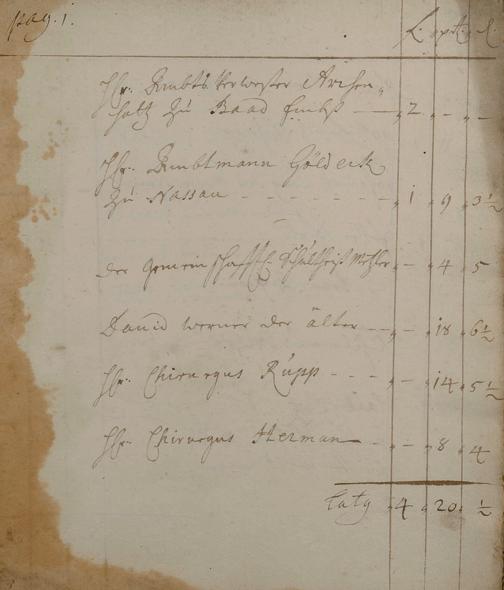 pag. 1.
Hr. Ambts Verweser Archen„
holtz zu Baad Embs — „ 2 „ – „ –
Hr. Ambtmann Göldeck
zu Nassau - - - - - - „ 1 „ 9 „ 3½
der gemeinschafftl. Schultheiß „ – „ 4 „ 5
David Werner der älter - - „ – „ 18 „ 6½
Hr. Chirurgus Rupp - - - „ – „ 14 „ 5½
Hr. Chirurgus Herman - „ – „ 8 „ 4
Latg „ 4 „ 20 „ ½